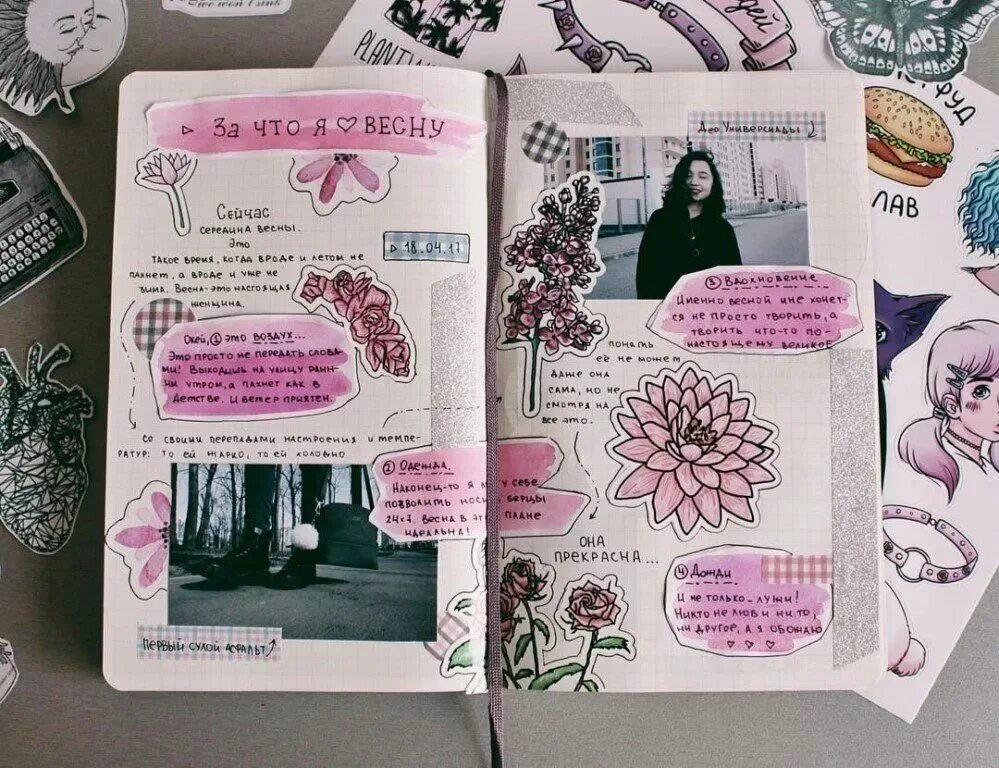 ve won't sink
PLANTIN
ДЕЙ
ФУД
ЛАВ
▷ За что я ♡ весну
Сейчас
середина весны.
Это
такое время, когда вроде и летом не
пахнет, а вроде и уже не
зима. Весна-это настоящая
женщина.
▷ 18.04.17
Окей, ① это воздух...
Это просто не передать слова-
ми! Выходишь на улицу ранн-
ни утром, а пахнет как в
детстве. И ветер приятен.
со своими перепадами настроения и темпе-
ратур: то ей жарко, то ей холодно
② Одежда.
Наконец-то я м у себе
позволить носи берцы
24×7. Весна в эт плане
идеальна!
Первый сухой асфальт
Део Универсиады
③ Вдохновение
Именно весной мне хочет-
ся не просто творить, а
творить что-то по-
настоящему великое
понять
её не может
даже она
сама, но не
смотря на
все это.
она
прекрасна...
④ Дожди
И не только - лужи!
Никто не любит ни то,
ни другое, а я обожаю
♡ ♡ ♡